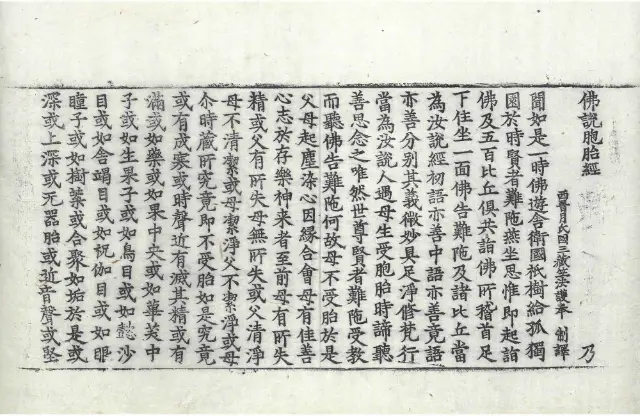 佛說胞胎經 西晉月氏國三藏竺法護奉 制譯 乃
聞如是一時佛遊舍衛國祇樹給孤獨
園於時賢者難陁燕坐思惟即起詣
佛及五百比丘俱共詣佛所稽首足
下住坐一面佛告難陁及諸比丘當
為汝說經初語亦善中語亦善竟語
亦善分別其義微妙具足淨修梵行
當為汝說人遇母生受胞胎時諦聽
善思念之唯然世尊賢者難陁受教
而聽佛告難陁何故母不受胎於是
父母起塵染心因緣合會母有佳善
心志於存樂神来者至前母有所失
精或父有所失母無所失或父清淨
母不清潔或母潔淨父不潔淨或母
尒時藏所究竟即不受胎如是究竟
或有成寒或時聲近有滅其精或有
滿或如藥或如果中央或如蓽茇中
子或如生果子或如鳥目或如懿沙
目或如舍竭目或如祝伽目或如眼
瞳子或如樹葉或合聚如垢於是或
深或上深或无器胎或近音聲或堅